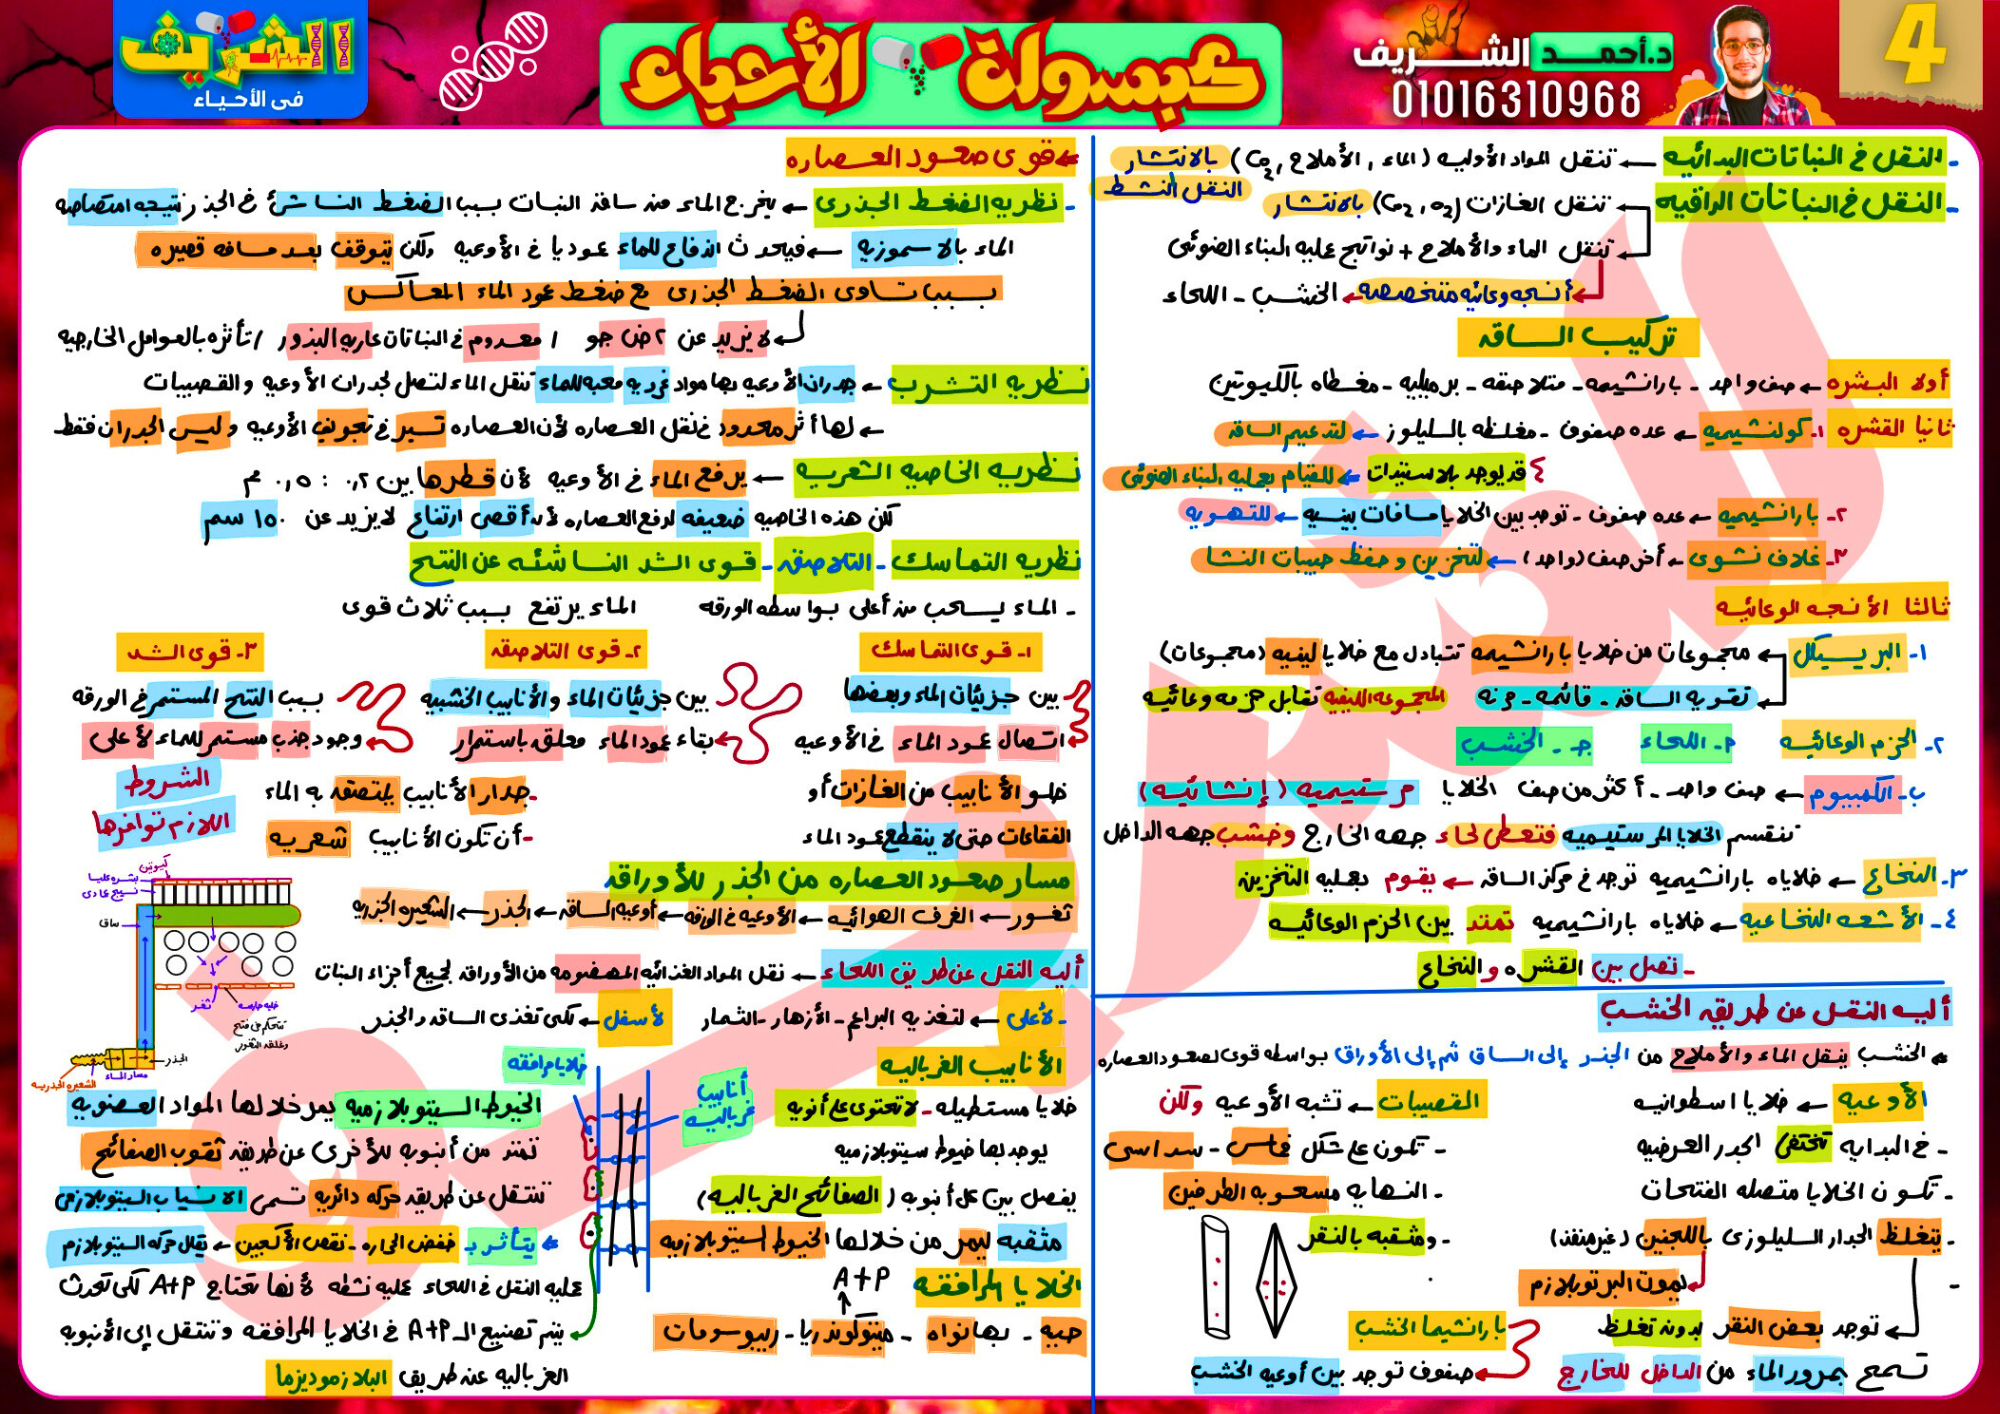 الشريف
في الأحياء
كبسولة الأحياء
د.أحمد الشريف
01016310968
4
- النقل في النباتات البدائيه ← تنقل المواد الأوليه (الماء , الأملاح , Co2) بالانتشار
النقل النشط
- النقل في النباتات الراقيه ← تنقل الغازات (Co2 , o2) بالانتشار
تنقل الماء والأملاح + نواتج عمليه البناء الضوئى
أنسجه وعائيه متخصصه ← الخشب - اللحاء
تركيب الساقه
أولا البشره ← صف واحد - بارانشيميه - متلاصقه - برميليه - مغطاه بالكيوتين
ثانيا القشره ١- كولنشيميه ← عده صفوف - مغلظه بالسليلوز ← لتدعيم الساقه
قد يوجد بلاستيدات ← للقيام بعمليه البناء الضوئى
٢- بارانشيميه ← عده صفوف - توجد بين الخلايا مسافات بينيه ← للتهويه
٣- غلاف نشوى ← أخر صف (واحد) ← لتخزين وحفظ حبيبات النشا
ثالثا الأنسجه الوعائيه
١- البريسيكل ← مجموعات من خلايا بارانشيمه تتبادل مع خلايا ليفيه (مجموعات)
تقويه الساقه - قائمه - مرنه المجموعه الليفيه تقابل حزمه وعائيه
٢- الحزم الوعائيه م- اللحاء جـ - الخشب
ب- الكمبيوم ← صف واحد - أكثر من صف الخلايا مرستيميه (إنشائيه)
تنقسم الخلايا المرستيميه فتعطى لحاء جهه الخارج وخشب جهه الداخل
٣- النخاع ← خلاياه بارانشيميه توجد في مركز الساقه ← يقوم بعمليه التخزين
٤- الأشعه النخاعيه ← خلاياه بارانشيميه تمتد بين الحزم الوعائيه
- تصل بين القشره والنخاع
أليه النقل عن طريقه الخشب
← الخشب ينقل الماء والأملاح من الجذر إلى الساق ثم إلى الأوراق بواسطه قوى لصعود العصاره
الأوعيه ← خلايا اسطوانيه
- في البدايه تختفى الجدر العرضيه
- تكون الخلايا متصله الفتحات
- يتغلظ الجدار السليلوزى باللجنين (غير منفذ)
يموت البرتوبلازم
توجد بعض النقر بدون تغلظ
تسمح بمرور الماء من الداخل للخارج
القصيبات ← تشبه الأوعيه ولكن
- تكون على شكل خماسى - سداسى
- النهايه مسحوبه الطرفين
- ومثقبه بالنقر
بارانشيما الخشب
صفوف توجد بين أوعيه الخشب
← قوى صعود العصاره
- نظريه الضغط الجذرى ← يخرج الماء من ساقه النبات بسبب الضغط الناشئ في الجذر نتيجه امتصاصه
الماء بالاسموزيه ← فيحدث اندفاع للماء عموديا في الأوعيه ولكن يتوقف بعد مسافه قصيره
بسبب تساوى الضغط الجذرى مع ضغط عمود الماء المعاكس
لا يزيد عن ٢ ض جو / معدوم في النباتات عاريه البذور / تأثره بالعوامل الخارجيه
نظريه التشرب ← جدران الأوعيه بها مواد غرويه محبه للماء تنقل الماء لتصل لجدران الأوعيه والقصيبات
← لها أثر محدود في نقل العصاره لأن العصاره تسير في تجويف الأوعيه وليس الجدران فقط
نظريه الخاصيه الشعريه ← يرفع الماء في الأوعيه لأن قطرها بين ٠,٢ : ٠,٥ م
لكن هذه الخاصيه ضعيفه لرفع العصاره لأن أقصى ارتفاع لا يزيد عن ١٥٠ سم
نظريه التماسك - التلاصقه - قوى الشد الناشئه عن النتح
- الماء يسحب من أعلى بواسطه الورقه الماء يرتفع بسبب ثلاث قوى
١- قوى التماسك
بين جزيئات الماء وبعضها
اتصال عمود الماء في الأوعيه
خلو الأنابيب من الغازات أو
الفقاعات حتى لا ينقطع عمود الماء
٢- قوى التلاصقه
بين جزيئات الماء والأنابيب الخشبيه
بقاء عمود الماء معلقه باستمرار
- جدار الأنابيب يلتصقه به الماء
- أن تكون الأنابيب شعريه
٣- قوى الشد
بسبب النتح المستمر في الورقه
وجود جذب مستمر للماء لأعلى
الشروط
اللازم توافرها
مسار صعود العصاره من الجذر للأوراقه
ثغور ← الغرف الهوائيه ← الأوعيه في الورقه ← أوعيه الساقه ← الجذر ← الشعيره الجذريه
كيوتين
بشره عليا
نسيج عمادى
ساق
ثغر
خليه حارسه
تتحكم فى فتح
وغلقه الثغور
الجذر
مسار الماء
الشعيره الجذريه
أليه النقل عن طريق اللحاء ← نقل المواد الغذائيه المهضومه من الأوراقه لجميع أجزاء النبات
- لأعلى ← لتغذيه البراعم - الأزهار - الثمار
لأسفل ← لكى تغذى الساقه والجذر
الأنابيب الغرباليه
خلايا مستطيله - لا تحتوى على أنويه
يوجد بها خيوط سيتوبلازميه
يفصل بين كل أنبوبه (الصفائح الغرباليه)
مثقبه ليمر من خلالها الخيوط السيتوبلازميه
الخلايا المرافقه
A+P
حيه - بها نواه - ميتوكوندريا - ريبوسومات
خلايا مرافقه
أنابيب
غرباليه
الخيوط السيتوبلازميه يمر خلالها المواد العضويه
تمتد من أنبوبه للأخرى عن طريقه ثقوب الصفائح
تنتقل عن طريقه حركه دائريه تسمى الانسياب السيتوبلازمى
← يتأثر بـ خفض الحراره - نقص الأكسجين ← يقلل حركه السيتوبلازم
عمليه النقل في اللحاء عمليه نشطه لأنها تحتاج A+P لكى تحدث
يتم تصنيع الـ A+P في الخلايا المرافقه وتنتقل إلى الأنبوبه
الغرباليه عن طريق البلازموديزما